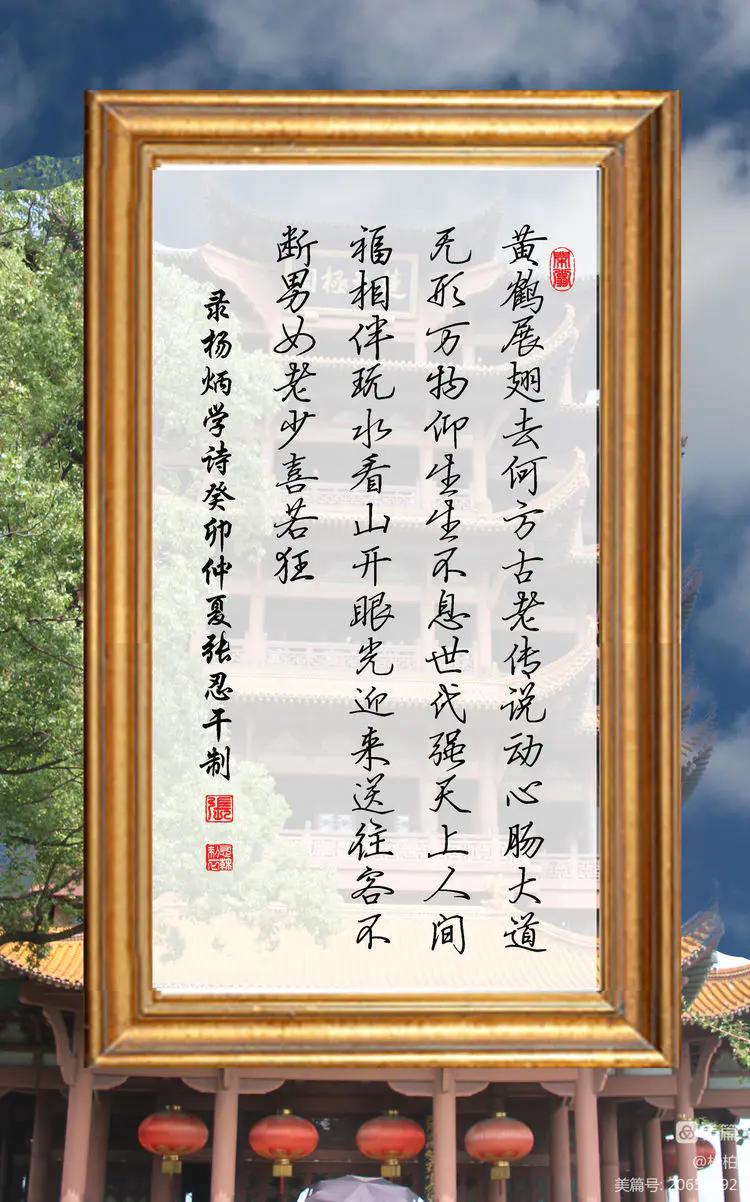 黄鹤展翅去何方古老传说动心肠大道
无形万物仰生生不息世代强天上人间
福相伴玩水看山开眼光迎来送往客不
断男女老少喜若狂
录杨炳学诗癸卯仲夏张忍干制
張
美篇
美篇号: 2065